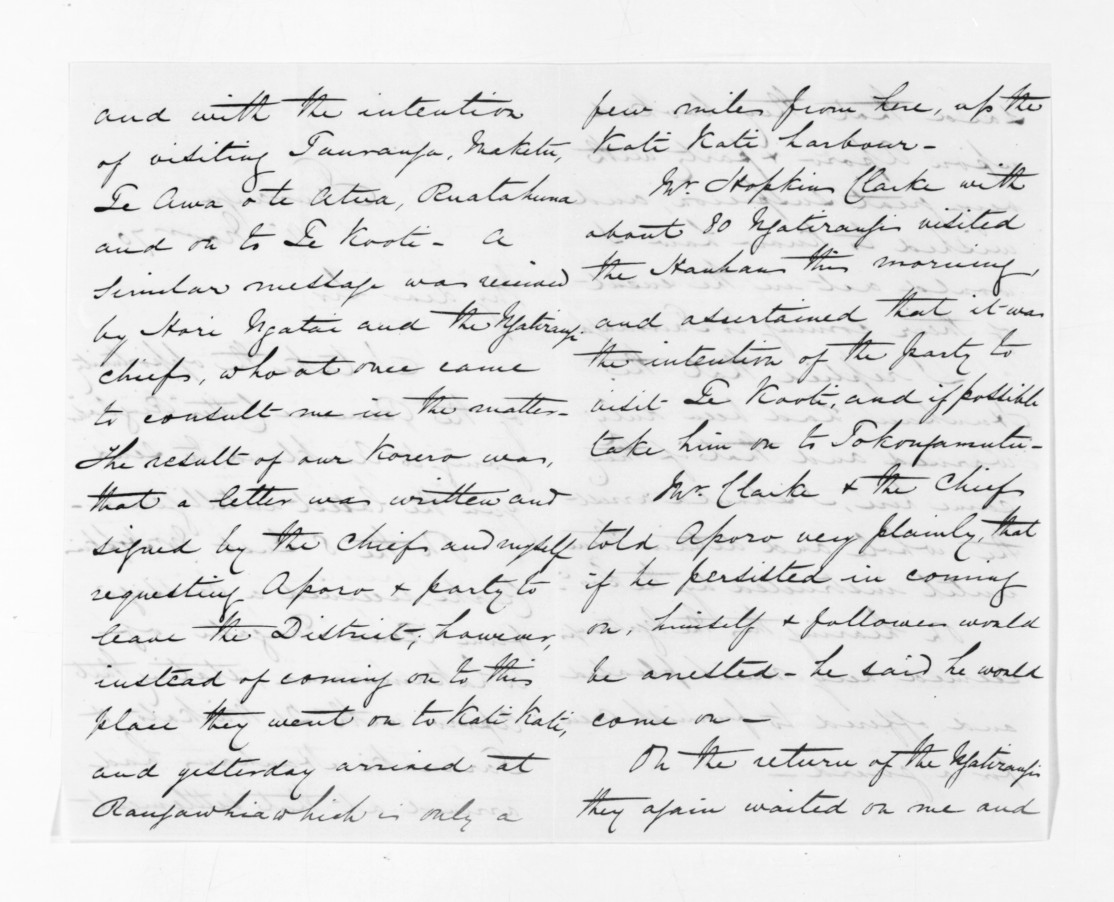 and with the intention
of visiting Tauranga, Maketu,
Te Awa o te Atua, Ruatahuna
and on to Te Kooti - A
similar message was received
by Hori Ngatai and the Ngatirangi
chiefs, who at once came
to consult me in the matter -
The result of our Korero was,
that a letter was written and
signed by the chiefs and myself
requesting Aporo & party to
leave the District; however,
instead of coming on to this
place they went on to Kati Kati,
and yesterday arrived at
Rangawhia which is only a
few miles from here, up the
Kati Kati harbour -
Mr. Hopkins Clarke with
about 80 Ngatirangis visited
the Hauhaus this morning,
and ascertained that it was
the intention of the party to
visit Te Kooti, and if possible
take him on to Tokangamutu -
Mr. Clarke & the Chiefs
told Aporo very plainly, that
if he persisted in coming
on, himself & followers would
be arrested - he said he would
come on -
On the return of the Ngatirangis
they again waited on me and